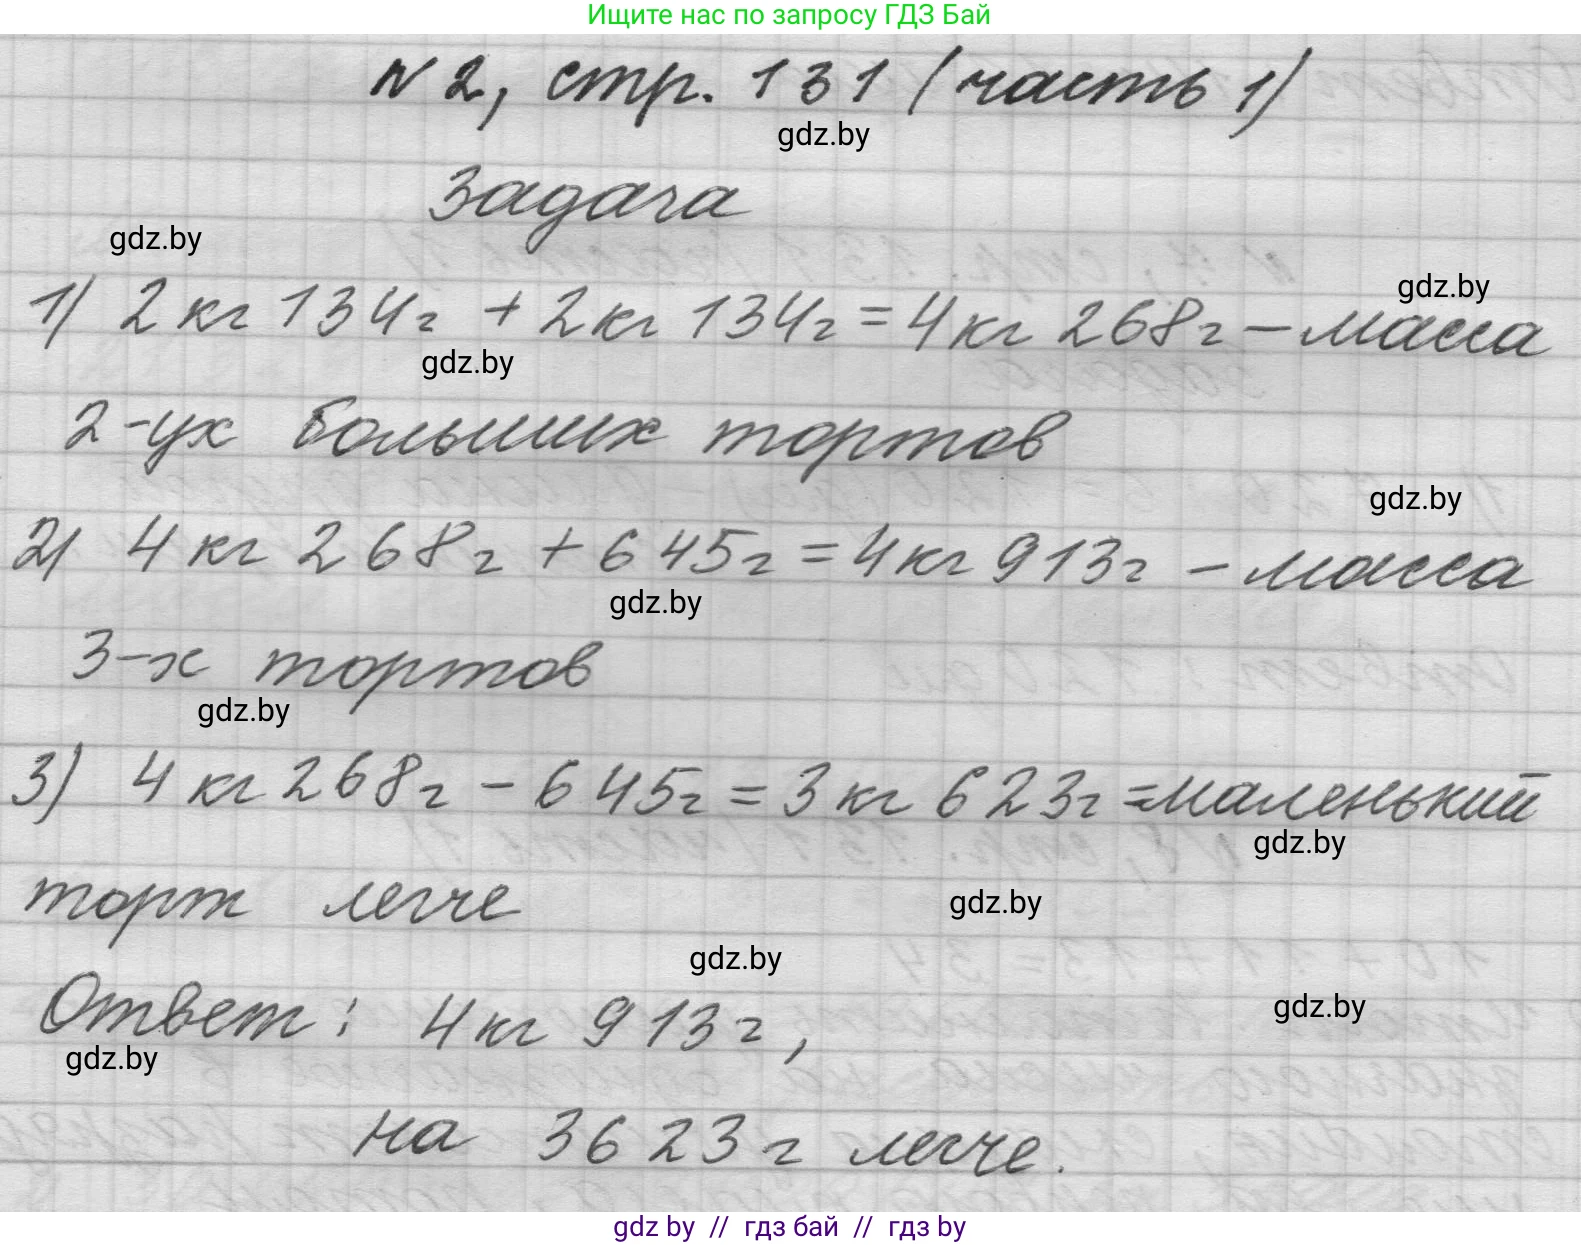 Ищите нас по запросу ГДЗ Бай
№ 2, стр. 131 (часть 1)
gdz.by
Задача
gdz.by
gdz.by
1) 2 кг 134 г + 2 кг 134 г = 4 кг 268 г — масса
gdz.by
2-ух больших тортов
gdz.by
2) 4 кг 268 г + 645 г = 4 кг 913 г — масса
gdz.by
3-х тортов
gdz.by
3) 4 кг 268 г - 645 г = 3 кг 623 г = маленький
gdz.by
торт легче
gdz.by
gdz.by
Ответ: 4 кг 913 г,
gdz.by
gdz.by
на 3623 г легче.
gdz by // гдз бай // гдз by